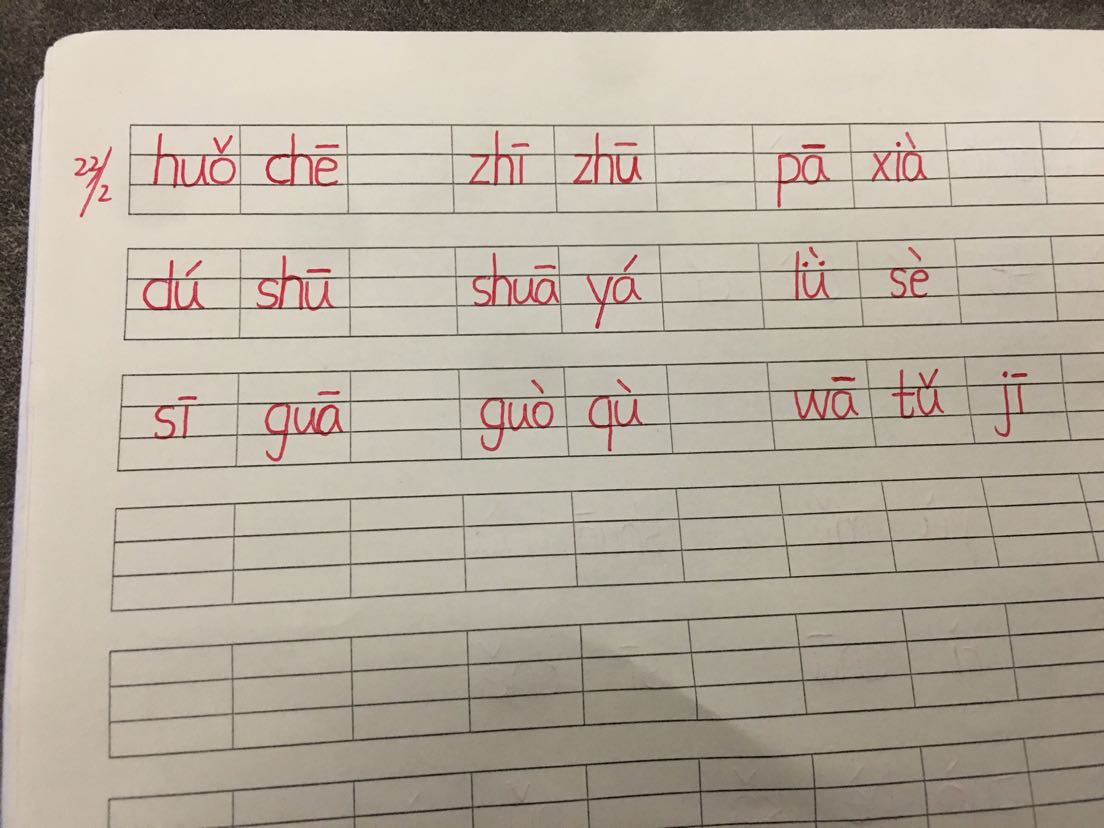 22/2 huǒ chē zhī zhū pā xià
dú shū shuā yá lǜ sè
sī guā guò qù wā tǔ jī